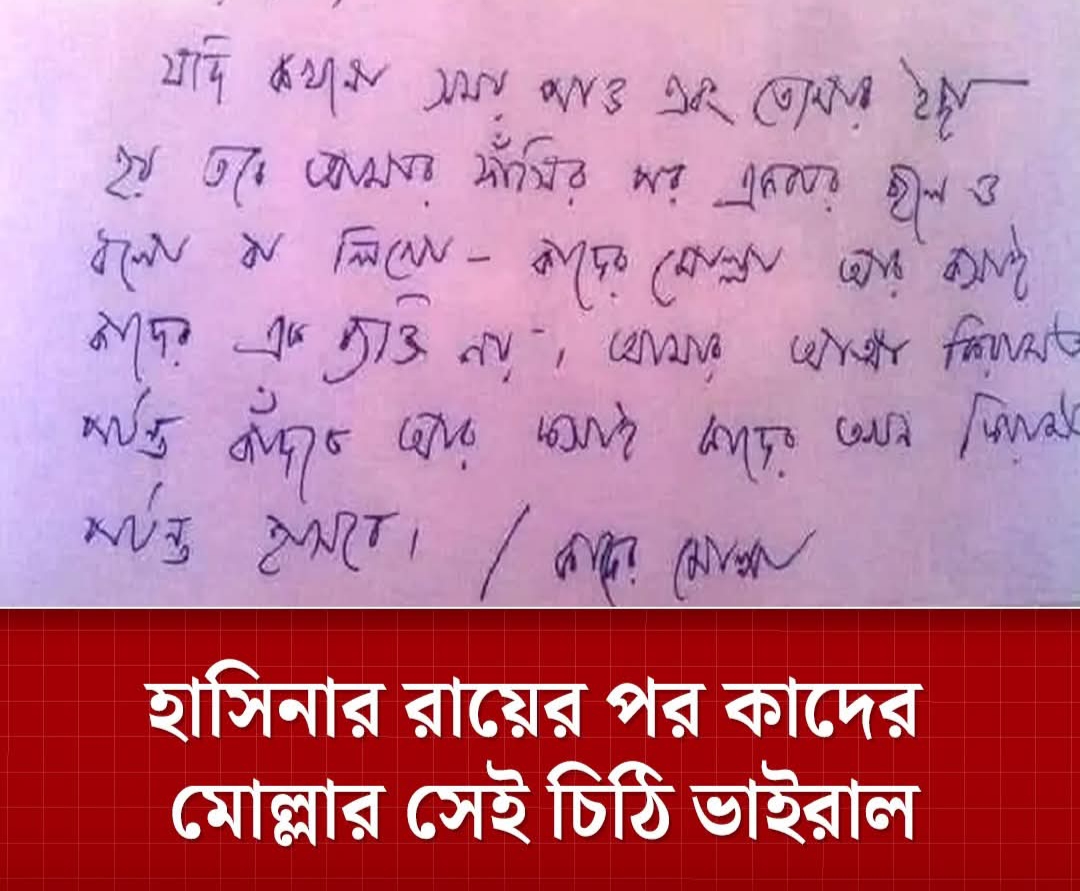 যদি কখনও সময় পাও এবং তোমার ইচ্ছা
হয় তবে আমার ফাঁসির পর একবার হলেও
বলো বা লিখো - কাদের মোল্লা আর কসাই
কাদের এক ব্যক্তি নয়, আমার আত্মা কিয়ামত
পর্যন্ত কাঁদবে আর কসাই কাদের তখন কিয়ামত
পর্যন্ত হাসবে। / কাদের মোল্লা
হাসিনার রায়ের পর কাদের
মোল্লার সেই চিঠি ভাইরাল